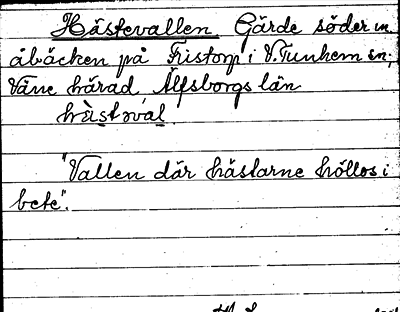 Hästevallen Gärde söder m
åbäcken på Fristorp i V. Tunhem sn;
Väne härad Älfsborgs län
hästəval
"Vallen där hästarne höllos i
bete".